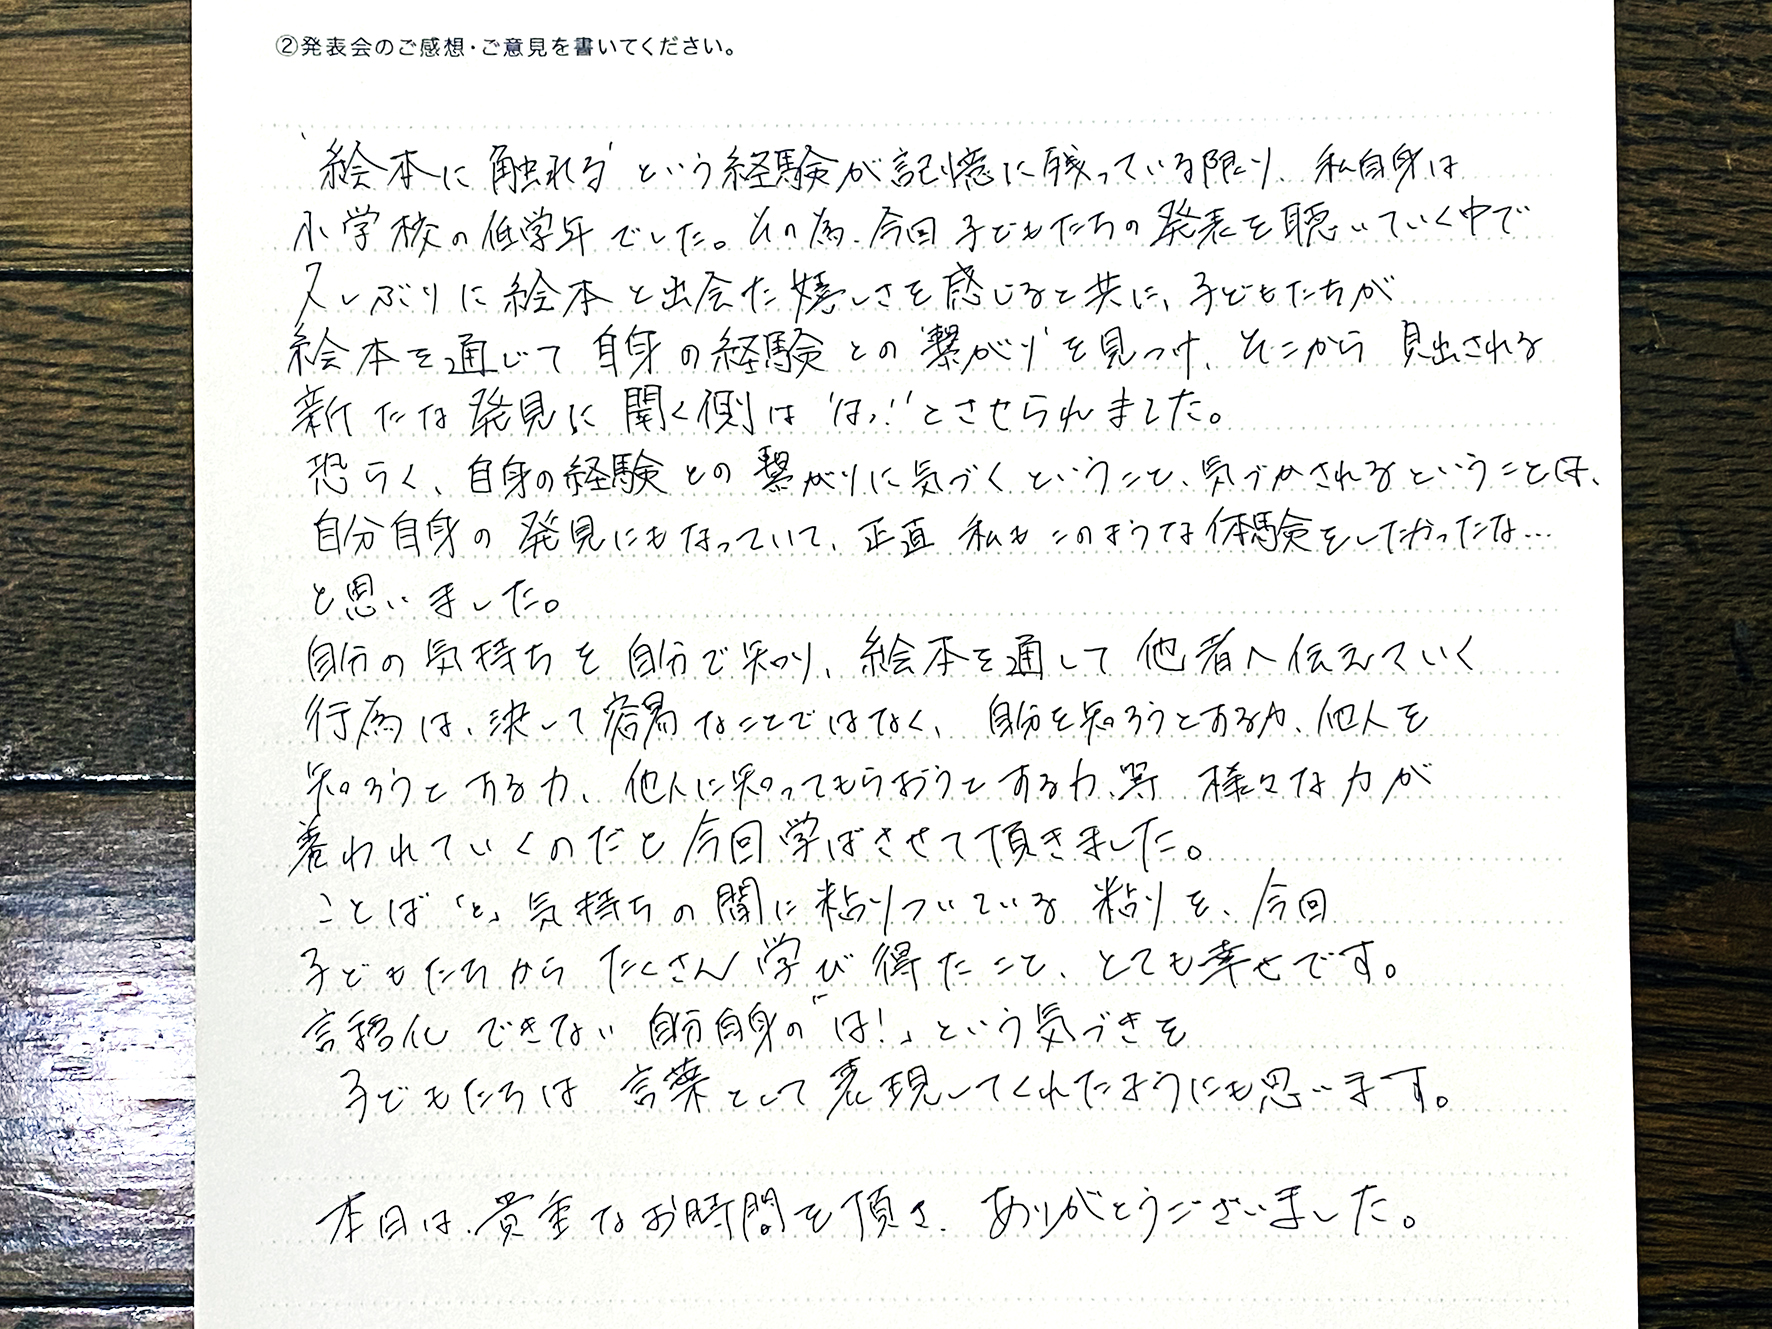 ②発表会のご感想・ご意見を書いてください。
'絵本に触れる'という経験が記憶に残っている限り、私自身は
小学校の低学年でした。その為、今回子どもたちの発表を聴いていく中で
久しぶりに絵本と出会た嬉しさを感じると共に、子どもたちが
絵本を通じて自身の経験との'繋がり'を見つけ、そこから見出される
新たな発見に聞く側は'はっ!'とさせられました。
恐らく、自身の経験との繋がりに気づくということ、気づかされるということは、
自分自身の発見にもなっていて、正直私もこのような体験をしたかったな…
と思いました。
自分の気持ちを自分で知り、絵本を通して他者へ伝えていく
行為は、決して容易なことではなく、自分を知ろうとする力、他人を
知ろうとする力、他人に知ってもらおうとする力、等様々な力が
養われていくのだと今回学ばさせて頂きました。
ことば「と」気持ちの間に粘りついている粘りを、今回
子どもたちからたくさん学び得たこと、とても幸せです。
言語化できない自分自身の「は!」という気づきを
子どもたちは言葉として表現してくれたようにも思います。
本日は、貴重なお時間を頂き、ありがとうございました。